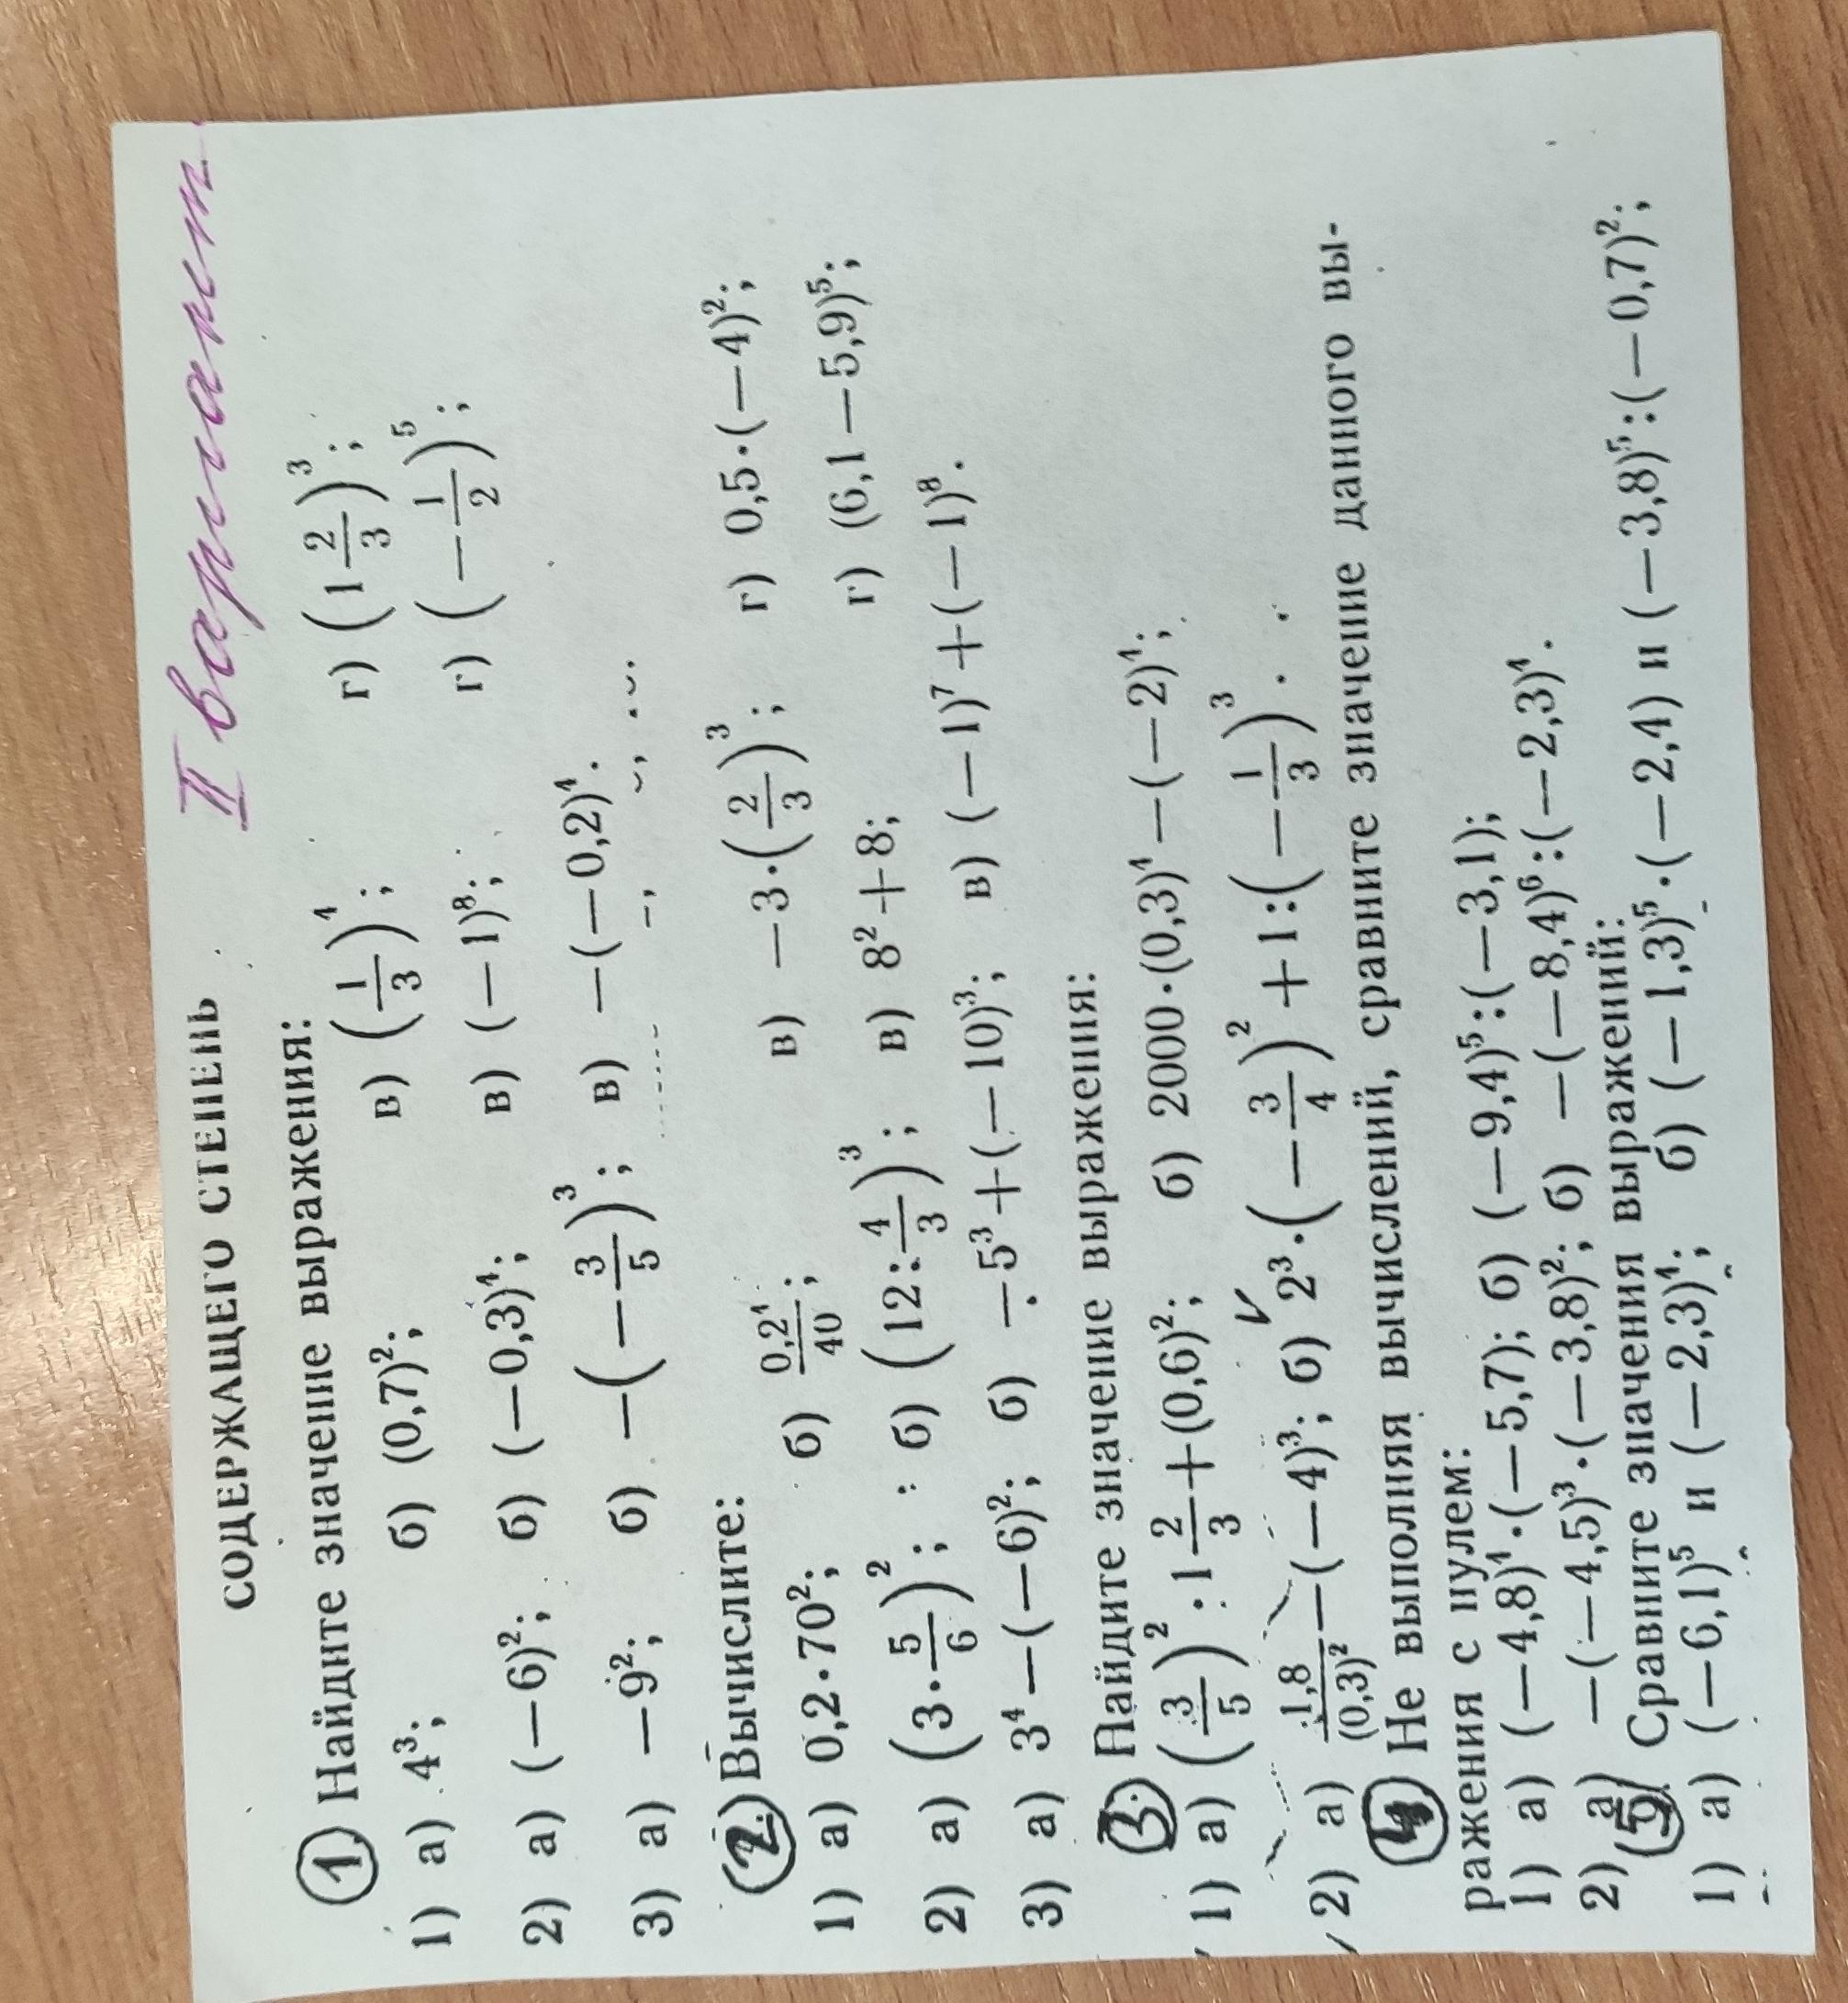 II вариант
СОДЕРЖАЩЕГО СТЕПЕНЬ
1 Найдите значение выражения:
1) а) 4³; б) (0,7)²; в) (1/3)⁴; г) (1 2/3)³;
2) а) (−6)²; б) (−0,3)⁴; в) (−1)⁸; г) (−1/2)⁵;
3) а) −9²; б) −(−3/5)³; в) −(−0,2)⁴.
2. Вычислите:
1) а) 0,2·70²; б) 0,2⁴/40; в) −3·(2/3)³; г) 0,5·(−4)²;
2) а) (3·5/6)²; б) (12:4/3)³; в) 8²+8; г) (6,1−5,9)⁵;
3) а) 3⁴−(−6)²; б) −5³+(−10)³; в) (−1)⁷+(−1)⁸.
3. Найдите значение выражения:
1) а) (3/5)²:1 2/3+(0,6)²; б) 2000·(0,3)⁴−(−2)⁴;
2) а) 1,8/(0,3)²−(−4)³; б) 2³·(−3/4)²+1:(−1/3)³.
4 Не выполняя вычислений, сравните значение данного вы-
ражения с нулем:
1) а) (−4,8)⁴·(−5,7); б) (−9,4)⁵:(−3,1);
2) а) −(−4,5)³·(−3,8)²; б) −(−8,4)⁶:(−2,3)⁴.
5 Сравните значения выражений:
1) а) (−6,1)⁵ и (−2,3)⁴; б) (−1,3)⁵·(−2,4) и (−3,8)⁵:(−0,7)²;